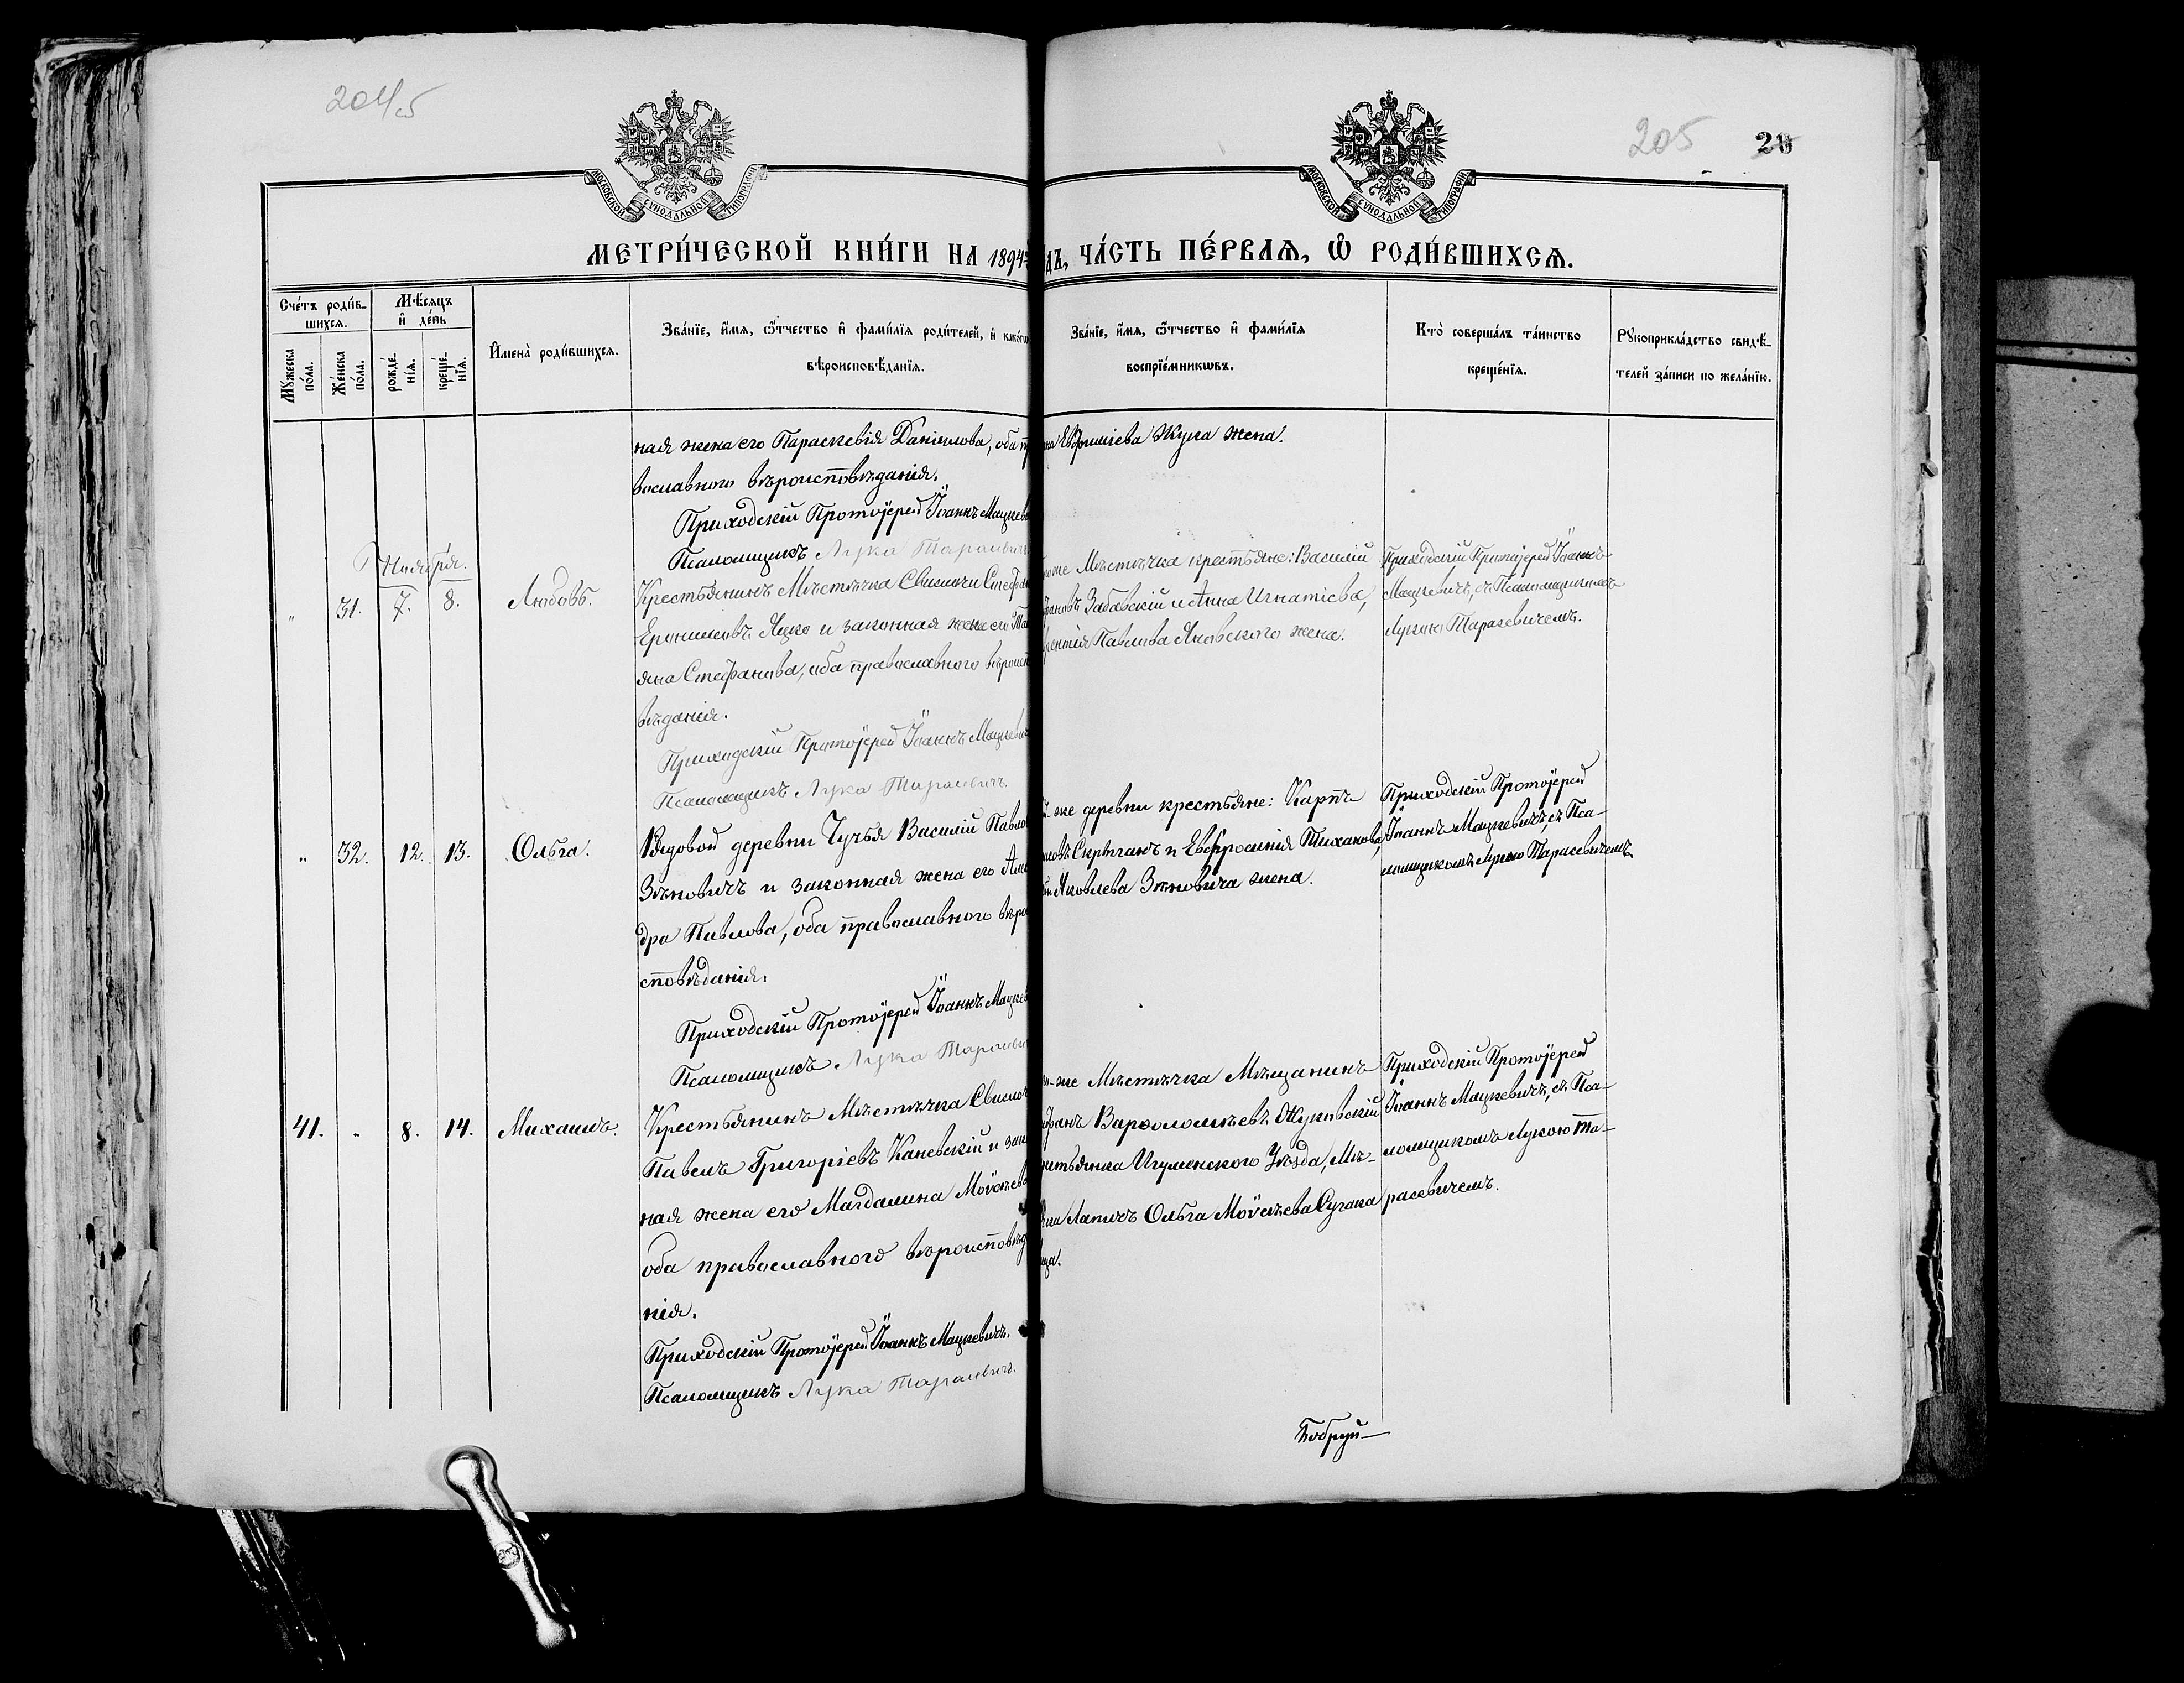 204 об
205 28
МОСКОВСКОЙ СѴНОДАЛЬНОЙ ТИПОГРАФІИ
МОСКОВСКОЙ СѴНОДАЛЬНОЙ ТИПОГРАФІИ
МЕТРИ́ЧЕСКОЙ КНИ́ГИ НА 1894 ДЪ, ЧА́СТЬ ПЕ́РВАѦ, Ѽ РОДИ́ВШИХСѦ.
Сче́тъ роди́в-
шихсѧ.
Мꙋ́жеска по́ла.
Же́нска по́ла.
Мѣ́сѧцъ и҆ де́нь
рожде́-нїѧ.
креще́-нїѧ.
И҆мена̀ роди́вшихсѧ.
Зва́нїе, и҆́мѧ, ѻ҆́тчество и҆ фами́лїѧ роди́телей, и҆ како́гѡ
вѣроисповѣ́данїѧ.
Зва́нїе, и҆́мѧ, ѻ҆́тчество и҆ фами́лїѧ
воспрїе́мникѡвъ.
Кто̀ соверша́лъ та́инство
креще́нїѧ.
Рꙋкоприкла́дство свидѣ́-
телей за́писи по жела́нїю.
ная жена его Параскевія Даніилова, оба п
вославнаго вѣроисповѣданія.
Приходскій Протоіерей Іоаннъ Мацкев
Псаломщикъ Лука Тарасевич
Евфиміева Жука жена.
Ноября.
" 31. 7. 8. Любовь.
Крестьянинъ Мѣстечка Свислочи Стефа
Еронимовъ Яцко и законная жена его Та
яна Стефанова, оба православнаго вѣроисп
вѣданія.
Приходскій Протоіерей Іоаннъ Мацкевич
Псаломщикъ Лука Тарасевич.
же Мѣстечка крестьяне: Василій
Забавскій и Анна Игнатіева,
рентія Павлова Яновского жена.
Приходскій Протоіерей Іоаннъ
Мацкевичъ, съ Псаломщикомъ
Лукою Тарасевичемъ.
" 32. 12. 13. Ольга.
Рядовой деревни Чучья Василій Павло
Зѣновичъ и законная жена его Алек
дра Павлова, оба православного вѣро
сповѣданія.
Приходскій Протоіерей Іоаннъ Мацкев
Псаломщикъ Лука Тарасеви
же деревни крестьяне: Карпъ
Скрыганъ и Евфросинія Тиханова,
Яковлева Зѣновича жена.
Приходскій Протоіерей
Іоаннъ Мацкевичъ, съ Пса-
ломщикомъ Лукою Тарасевичемъ.
41. " 8. 14. Михаилъ.
Крестьянинъ Мѣстечка Свислоч
Павелъ Григоріевъ Каневскій и зак
ная жена его Магдалина Моѵсеева
оба православного вѣроисповѣд
нія.
Приходскій Протоіерей Іоаннъ Мацкевичъ.
Псаломщикъ Лука Тарасевичъ.
же Мѣстечка Мѣщанинъ
Варѳоломѣевъ Жуковскій
Игуменского Уѣзда, Мѣ-
чка Лапичъ Ольга Моѵсеева Сугака
ица.
Приходскій Протоіерей
Іоаннъ Мацкевичъ, съ Пса-
ломщикомъ Лукою Та-
расевичемъ.
Бобруй-